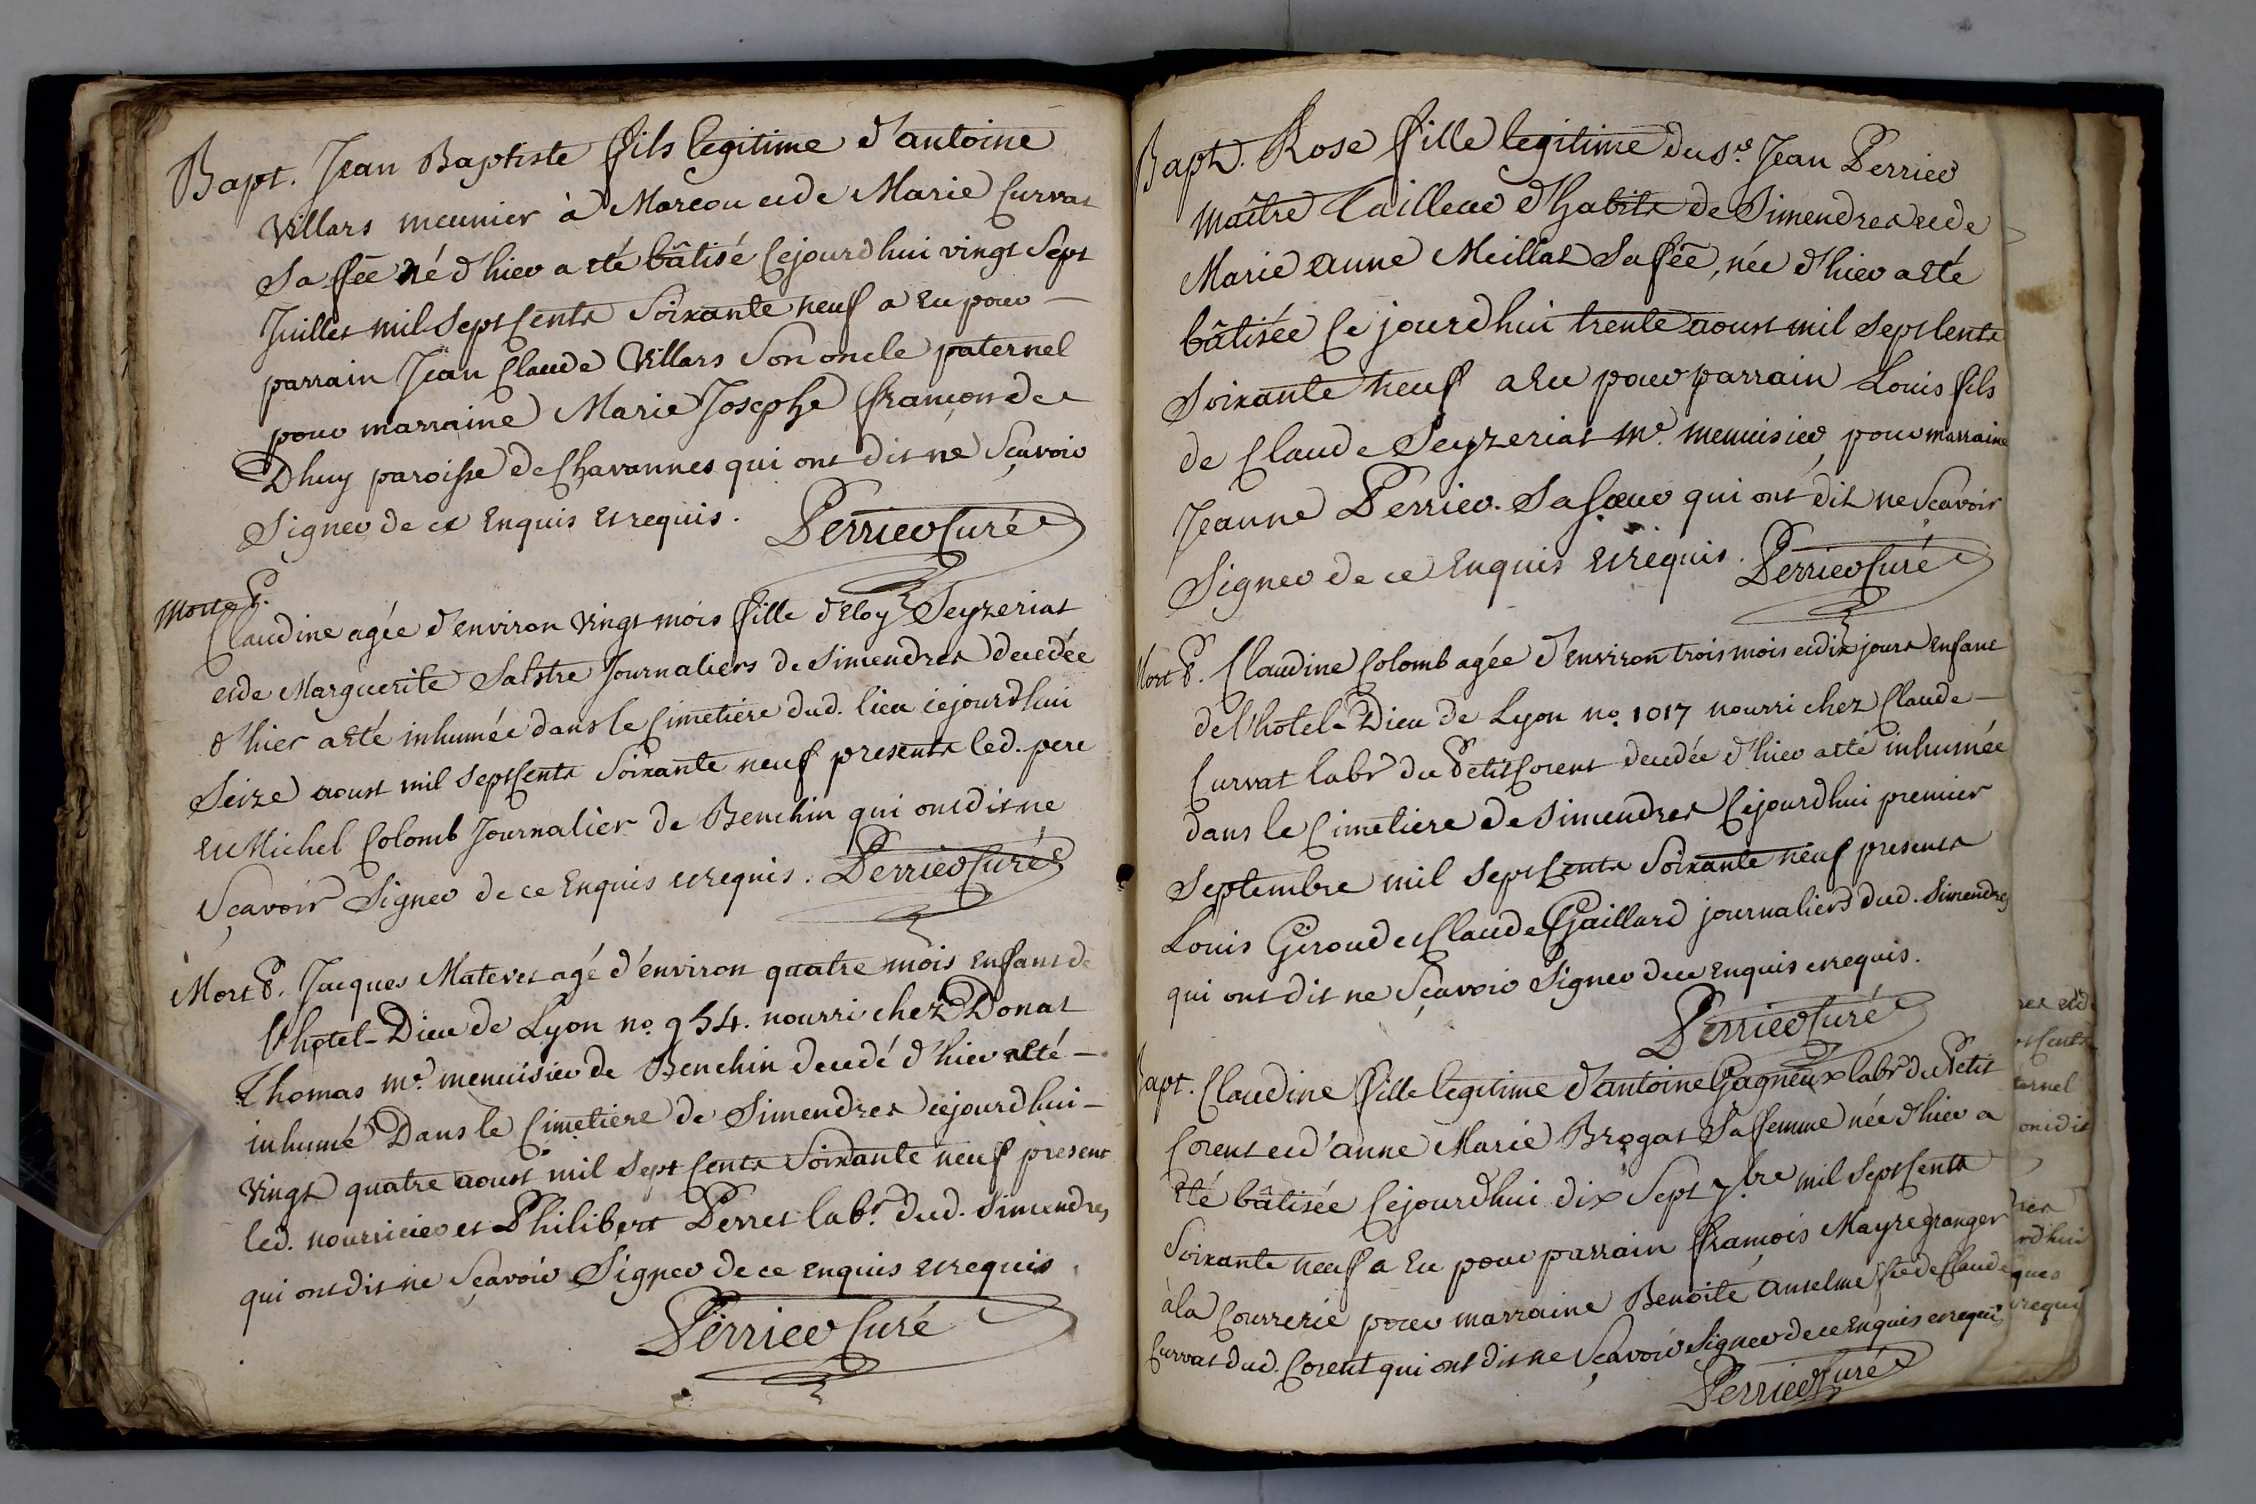 Bapt. Jean Baptiste fils legitime d'antoine
Villars meunier à Marcou et de Marie Curvat
Sa fee né d'hier a eté bâtisé Cejourdhui vingt Sept
Juillet mil Sept Cents Soixante neuf a Eu pour
parrain Jean Claude Villars Son oncle paternel
pour marraine Marie Josephe françon de
Dhuy paroisse de Chavannes qui ont dit ne Sçavoir
Signer de ce Enquis et requis. Perrier Curé
Morte P.
Claudine agée d'environ vingt mois fille d'Eloy Seyzeriat
et de Marguerite Salstre Journaliers de Simendres decedée
d'hier a eté inhumée dans le Cimetiere dud. lieu cejourdhui
Seize aoust mil Sept Cents Soixante neuf presents led. pere
et Michel Colomb Journalier de Benchin qui ont dit ne
Sçavoir Signer de ce Enquis et requis. Perrier Curé
Mort P. Jacques Matevet agé d'environ quatre mois Enfant de
l'hotel-Dieu de Lyon no. 954. nourri chez Donat
Thomas me. menuisier de Benchin decedé d'hier a eté
inhumé Dans le Cimetiere de Simendres cejourdhui
vingt quatre aoust mil Sept Cents Soixante neuf present
led. nourricier et Philibert Perret labr. dud. Simendres
qui ont dit ne Sçavoir Signer de ce enquis et requis
Perrier Curé
Bapt. Rose fille legitime du Sr. Jean Perrier
maître Tailleur d'habits de Simendres et de
Marie Anne Meillat Sa fee, née d'hier a eté
bâtisée Ce jourdhui trente aoust mil Sept Cents
Soixante neuf a Eu pour parrain Louis fils
de Claude Seyzeriat me. menuisier, pour marraine
Jeanne Perrier. Sa Sœur qui ont dit ne Scavoir
Signer de ce Enquis et requis. Perrier Curé
Mort P. Claudine Colomb agée d'environ trois mois et dix jours Enfant
de l'hotel-Dieu de Lyon no. 1017 nourri chez Claude
Curvat labr du Petit Corent decedée d'hier a eté inhumée
dans le Cimetiere de Simendres Cejourdhui premier
Septembre mil Sept Cents Soixante neuf presents
Louis Giroud et Claude Gaillard journaliers dud. Simendres
qui ont dit ne Sçavoir Signer de ce enquis et requis.
Perrier Curé
Bapt. Claudine fille legitime d'antoine Gagneux labr du Petit
Corent et d'anne Marie Brogat Sa femme née d'hier a
eté bâtisée Cejourdhui dix Sept 7bre mil Sept Cents
Soixante neuf a Eu pour parrain françois Mayre granger
à la Courrerie pour marraine Benoite Anselme fee de Claude
Curvat dud. Corent qui ont dit ne Sçavoir Signer de ce Enquis et requis
Perrier Curé